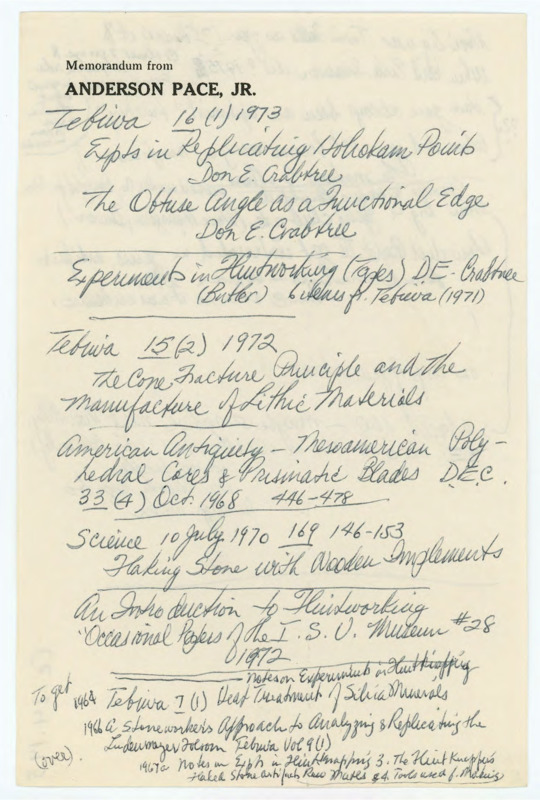 Memorandum from
ANDERSON PACE, JR.
Tebiwa 16 (1) 1973
Expts in Replicating Hohokam Points
Don E. Crabtree
The Obtuse Angle as a Functional Edge
Don E. Crabtree
Experiments in Flintworking (Tapes) D E - Crabtree
(Butler) 6 items fr. Tebiwa (1971)
Tebiwa 15 (2) 1972
The Cone Fracture Principle and the
Manufacture of Lithic Materials
American Antiquity - Mesoamerican Poly-
hedral Cores & Prismatic Blades D.E.C.
33 (4) Oct. 1968 446-478
Science 10 July 1970 169 146-153
Flaking Stone with Wooden Implements
An Introduction to Flintworking
"Occasional Papers of the I. S. U. Museum #28
1972
Notes on Experiments in Flint Knapping
To get 1964 Tebiwa 7 (1) Heat Treatment of Silica Minerals
1966 A Stoneworker's Approach to Analyzing & Replicating the
Lindenmeier Folsom Tebiwa Vol 9 (1)
(over) 1967a Notes on Expts in Flintknapping 3. The Flint Knapper's
Raw Matls & 4. Tools used f. Making
Flaked Stone artifacts